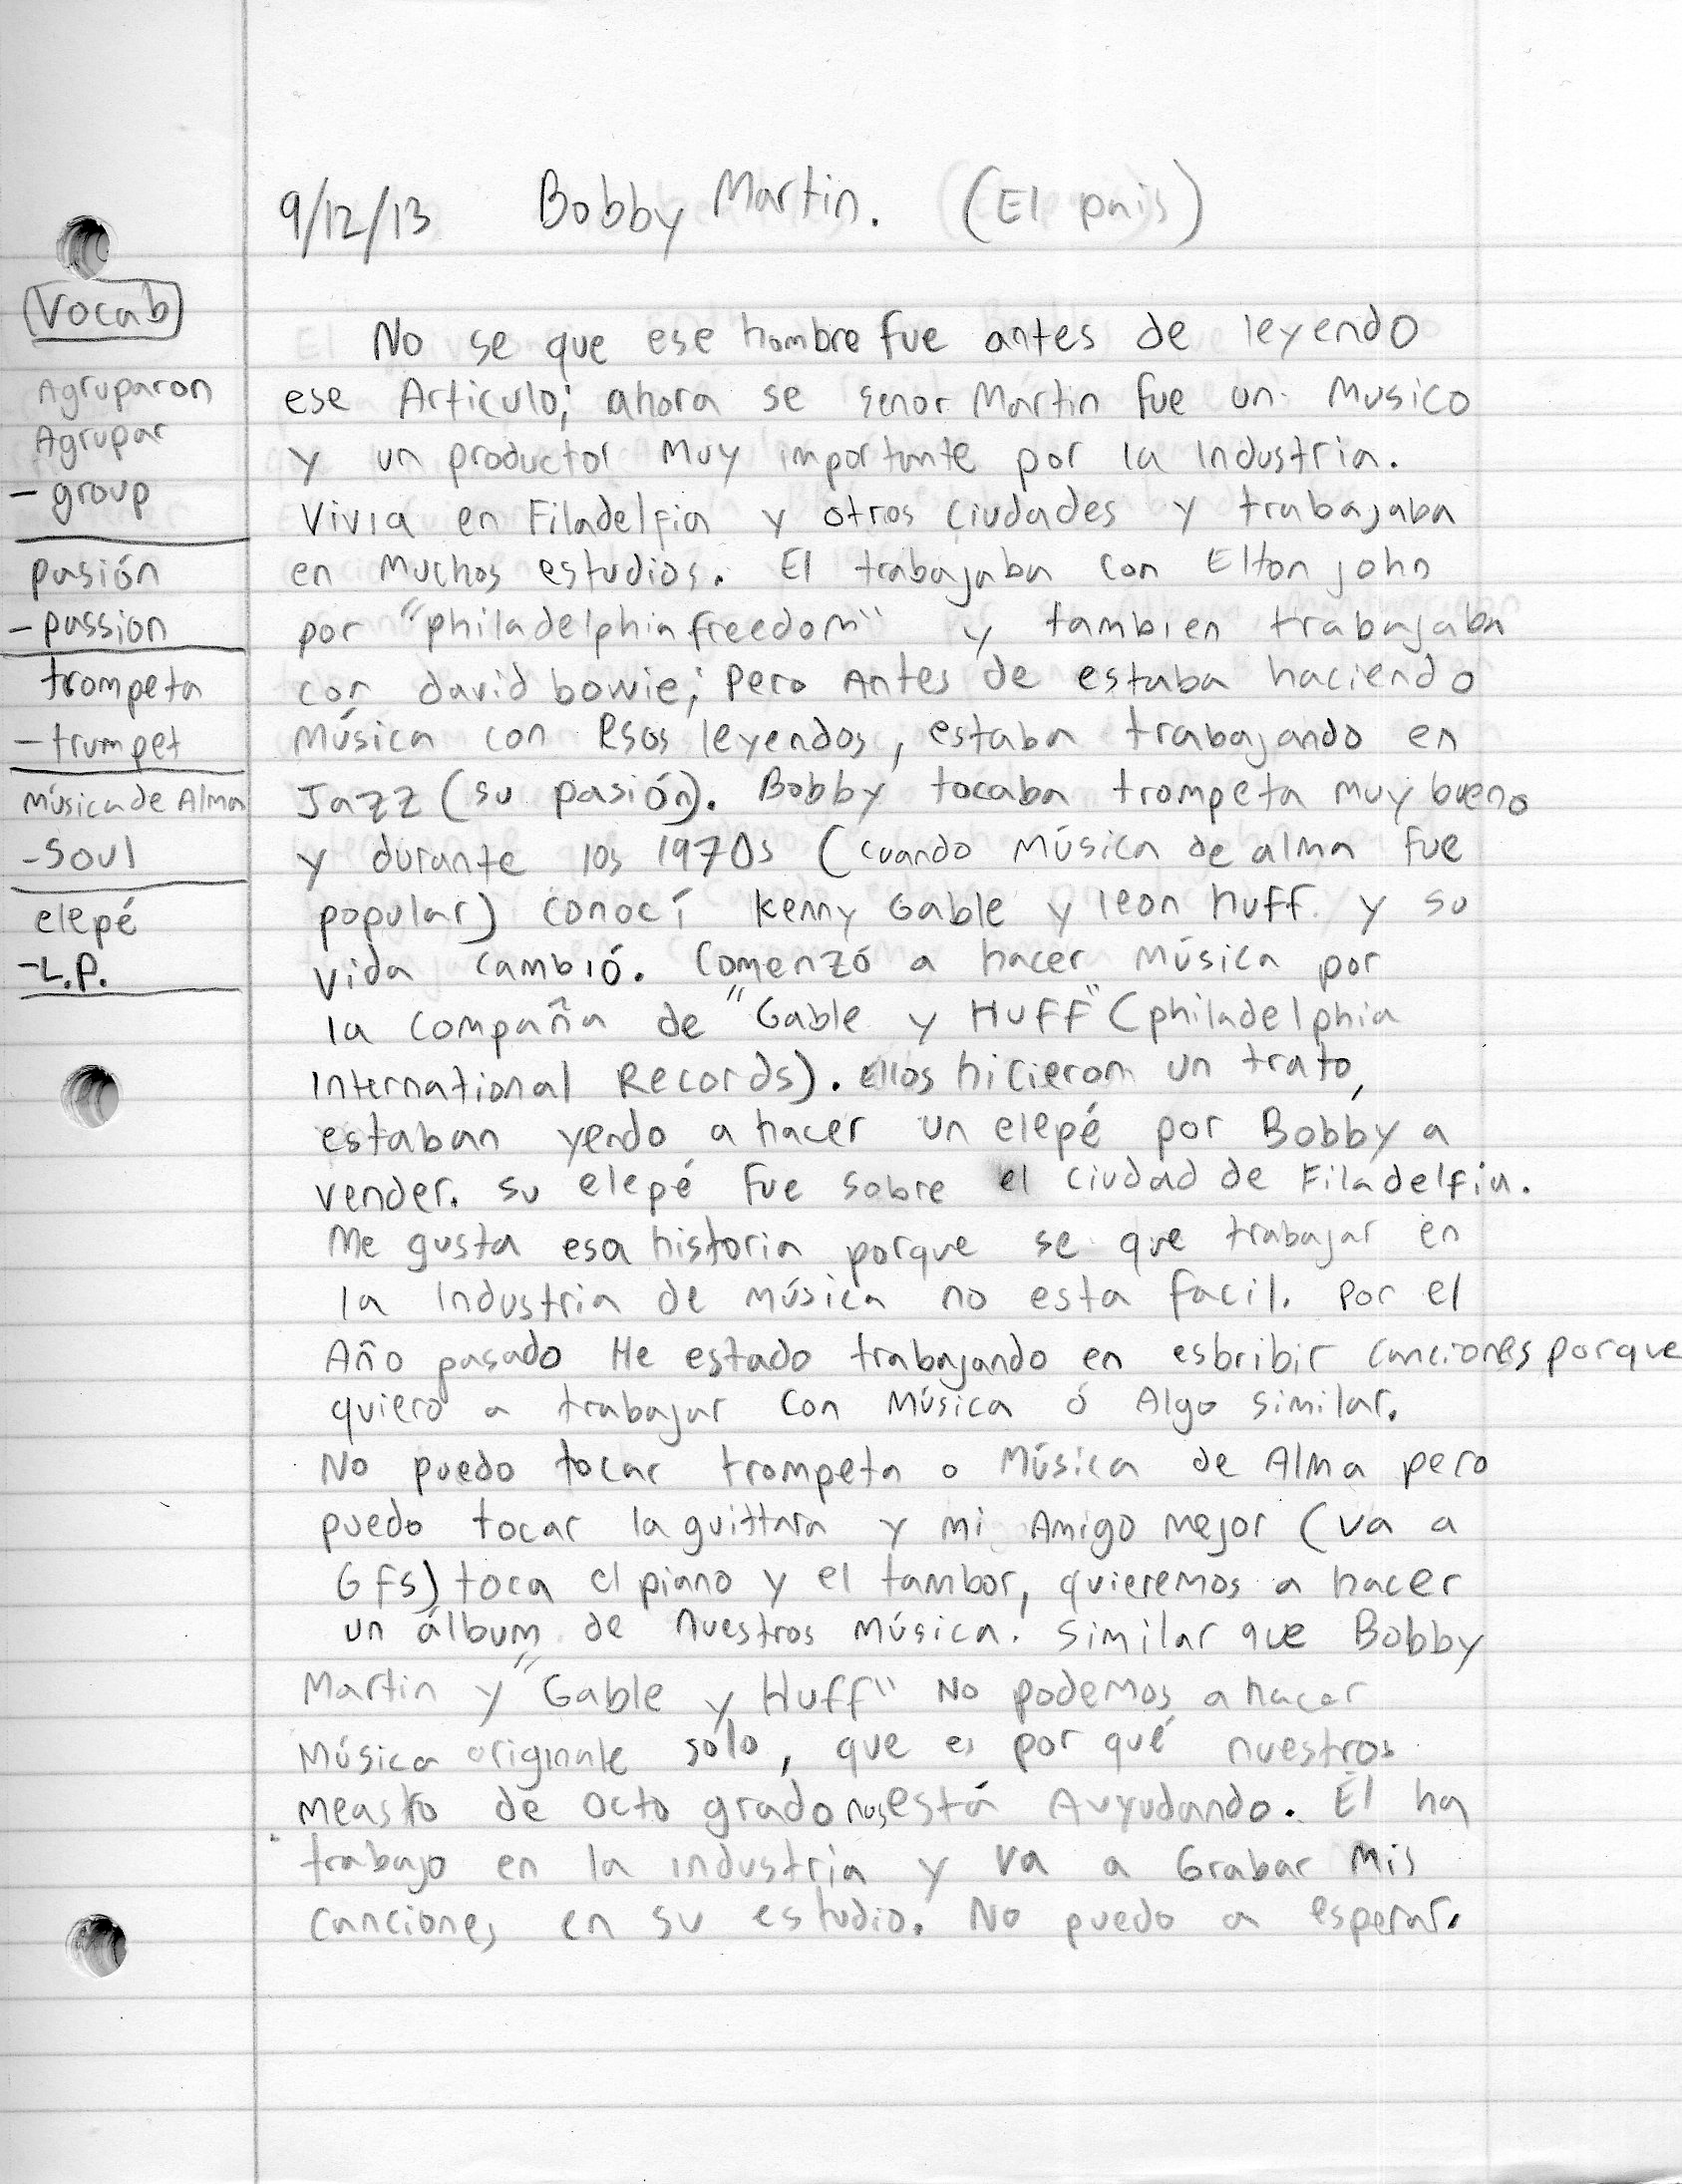 9/12/13 Bobby Martin. (El pais)
Vocab
Agruparon
Agrupar
- group
pasión
- passion
trompeta
- trumpet
música de Alma
- Soul
elepé
- L.P.
No se que ese hombre fue antes de leyendo
ese Articulo; ahora se senor Martin fue un Musico
y un productor Muy importante por la Industria.
Vivia en Filadelfia y otros ciudades y trabajaba
en Muchos estudios. El trabajaba con Elton john
por "philadelphia freedom" y tambien trabajaba
con david bowie; pero Antes de estaba haciendo
Música con Esos leyendos, estaba trabajando en
Jazz (su pasión). Bobby tocaba trompeta muy bueno
y durante los 1970s (cuando Música de alma fue
popular) conocí Kenny Gable y leon huff y su
vida cambió. Comenzó a hacer Música por
la compaña de "Gable y Huff" (philadelphia
International Records). Ellos hicieron un trato,
estaban yendo a hacer un elepé por Bobby a
vender. su elepé fue sobre el ciudad de Filadelfia.
Me gusta esa historia porque se que trabajar en
la Industria de música no esta facil. Por el
Año pasado He estado trabajando en esbribir canciones porque
quiero a trabajar con Música ó Algo similar.
No puedo tocar trompeta o Música de Alma pero
puedo tocar la guittara y mi Amigo mejor (va a
GFS) toca el piano y el tambor, quieremos a hacer
un álbum de nuestros música. Similar que Bobby
Martin y "Gable y Huff" No podemos a hacer
Música originale sólo, que es por qué nuestros
measto de octo grado nos está Avyudando. Él ha
trabajo en la industria y va a Grabar Mis
canciones en su estudio. No puedo a esperar.